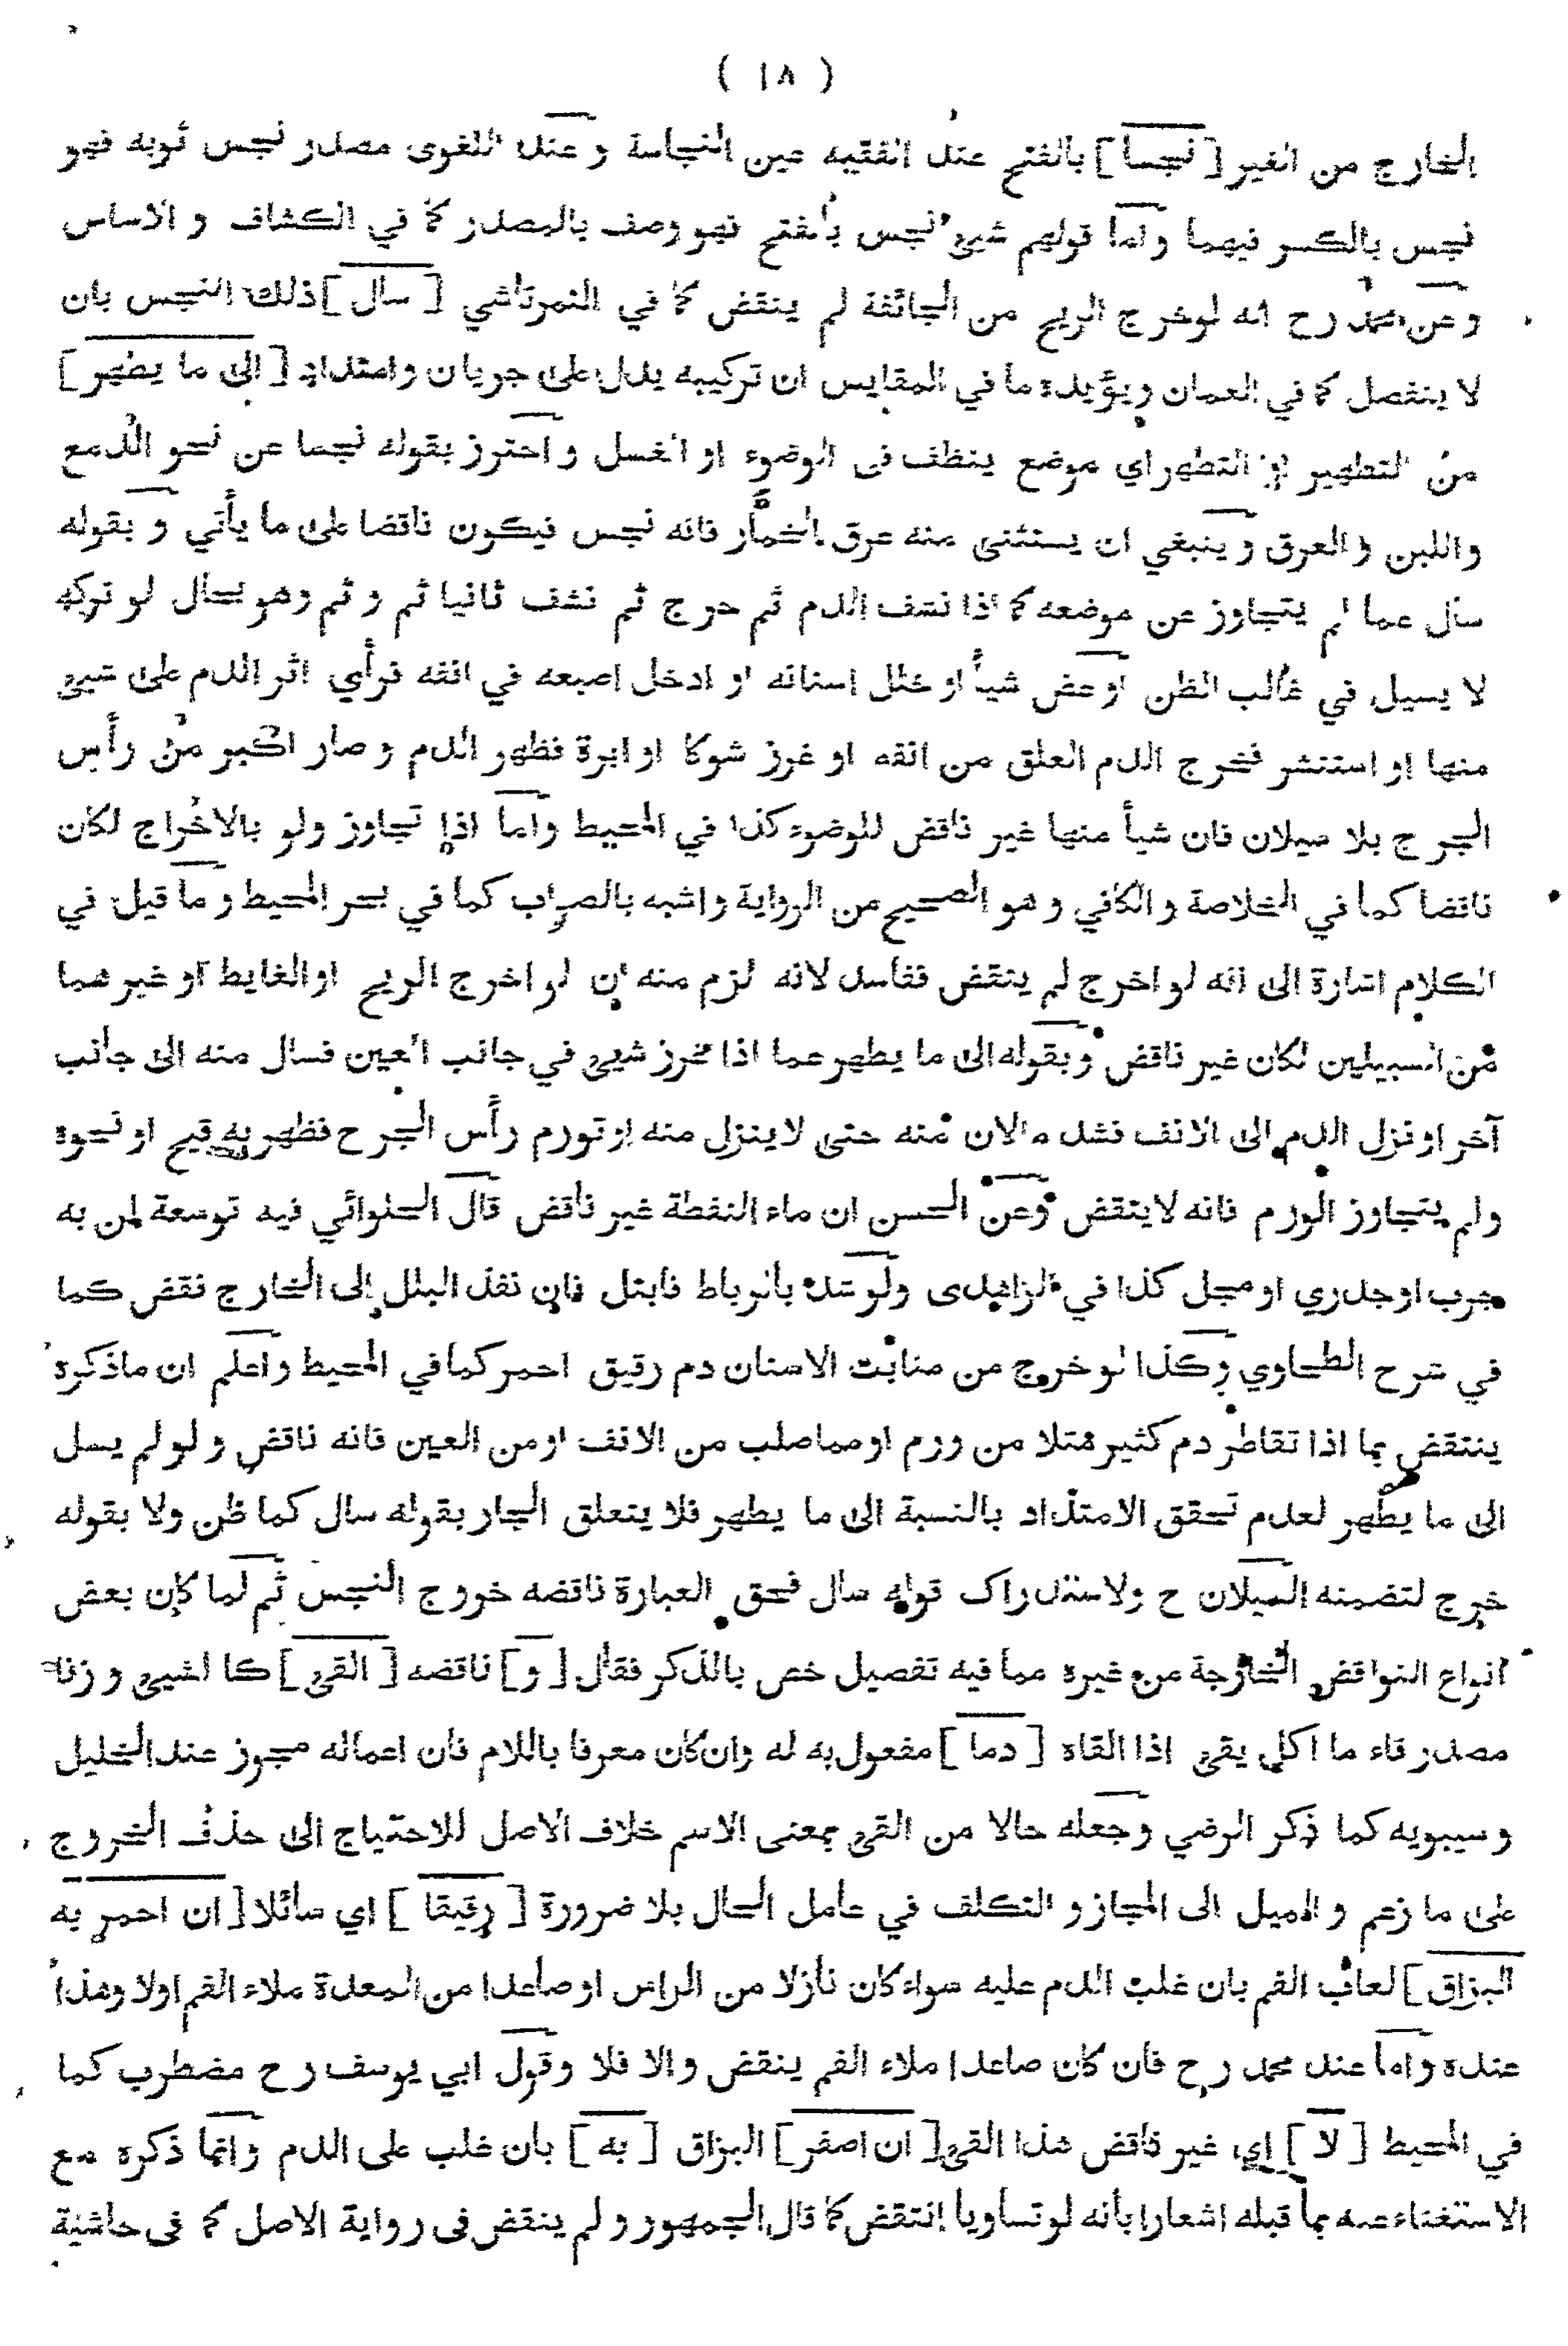 ( ١٨ )
الخارج من الغير [ نجسا ] بالفتح عند الفقيه عين النجاسة و عند اللغوى مصدر نجس ثوبه فهو
نجس بالكسر فيهما واما قولهم شيئ نجس بالفتح فهو وصف بالمصدر كما في الكشاف و الاساس
وعن محمد رح انه لوخرج الريح من الجائفة لم ينقض كما في التمرتاشي [ سال ] ذلك النجس بان
لا ينفصل كما في العمان ويؤيده ما في المقايس ان تركيبه يدل على جريان وامتداد [ الى ما يطهر ]
من التطهير او التطهر اي موضع ينظف فى الوضوء او الغسل و احترز بقوله نجسا عن نحو الدمع
واللبن و العرق و ينبغي ان يستثنى منه عرق الخمار فانه نجس فيكون ناقضا على ما يأتي و بقوله
سال عما لم يتجاوز عن موضعه كما اذا نشف الدم ثم خرج ثم نشف ثانيا ثم و ثم وهو بحال لو تركه
لا يسيل في غالب الظن او عض شيأ او خلل اسنانه او ادخل اصبعه في انفه فرأي اثر الدم على شيئ
منها او استنشر فخرج الدم العلق من انفه او غرز شوكا او ابرة فظهر الدم و صار اكبر من رأس
الجرح بلا سيلان فان شيأ منها غير ناقض للوضوء كذا في المحيط واما اذا تجاوز ولو بالاخراج لكان
ناقضا كما في الخلاصة و الكافي و هو الصحيح من الرواية و اشبه بالصواب كما في بحر المحيط و ما قيل في
الكلام اشارة الى انه لو اخرج لم ينقض ففاسد لانه لزم منه ان لو اخرج الريح او الغايط او غير هما
من السبيلين لكان غير ناقض وبقوله الى ما يطهر عما اذا غرز شيئ في جانب العين فسال منه الى جانب
آخر او نزل الدم الى الانف فشد مالان منه حتى لاينزل منه او تورم رأس الجرح فظهر به قيح او نحوه
ولم يتجاوز الورم فانه لاينقض وعن الحسن ان ماء النفطة غير ناقض قال الحلوائي فيه توسعة لمن به
جرب او جدري او مجل كذا في الزاهدى ولو شد بالرباط فابتل فان نفذ البلل الى الخارج نقض كما
في شرح الطحاوي وكذا لو خرج من منابت الاسنان دم رقيق احمر كما في المحيط واعلم ان ماذكره
ينتقض بما اذا تقاطر دم كثير مثلا من ورم او مما صلب من الانف او من العين فانه ناقض و لو لم يسل
الى ما يطهر لعدم تحقق الامتداد بالنسبة الى ما يطهر فلا يتعلق الجار بقوله سال كما ظن ولا بقوله
خرج لتضمنه السيلان ح ولاستدراك قوله سال فحق العبارة ناقضه خروج النجس ثم لما كان بعض
انواع النواقض الخارجة من غيره مما فيه تفصيل خص بالذكر فقال [ و ] ناقضه [ القئ ] كا لشيئ و زنا
مصدر قاء ما اكل يقئ اذا القاه [ دما ] مفعول به له وان كان معرفا باللام فان اعماله مجوز عند الخليل
و سيبويه كما ذكر الرضي وجعله حالا من القئ بمعنى الاسم خلاف الاصل للاحتياج الى حذف الخروج
على ما زعم و الميل الى المجاز و التكلف في عامل الحال بلا ضرورة [ رقيقا ] اي سائلا [ ان احمر به
البزاق ] لعاب الفم بان غلب الدم عليه سواء كان نازلا من الراس او صاعدا من المعدة ملاء الفم اولا وهذا
عنده واما عند محمد رح فان كان صاعدا ملاء الفم ينقض والا فلا وقول ابي يوسف رح مضطرب كما
في المحيط [ لا ] اي غير ناقض هذا القئ [ ان اصفر ] البزاق [ به ] بان غلب على الدم وانما ذكره مع
الاستغناء عنه بما قبله اشعارا بأنه لو تساويا انتقض كما قال الجمهور و لم ينقض فى رواية الاصل كما فى حاشية